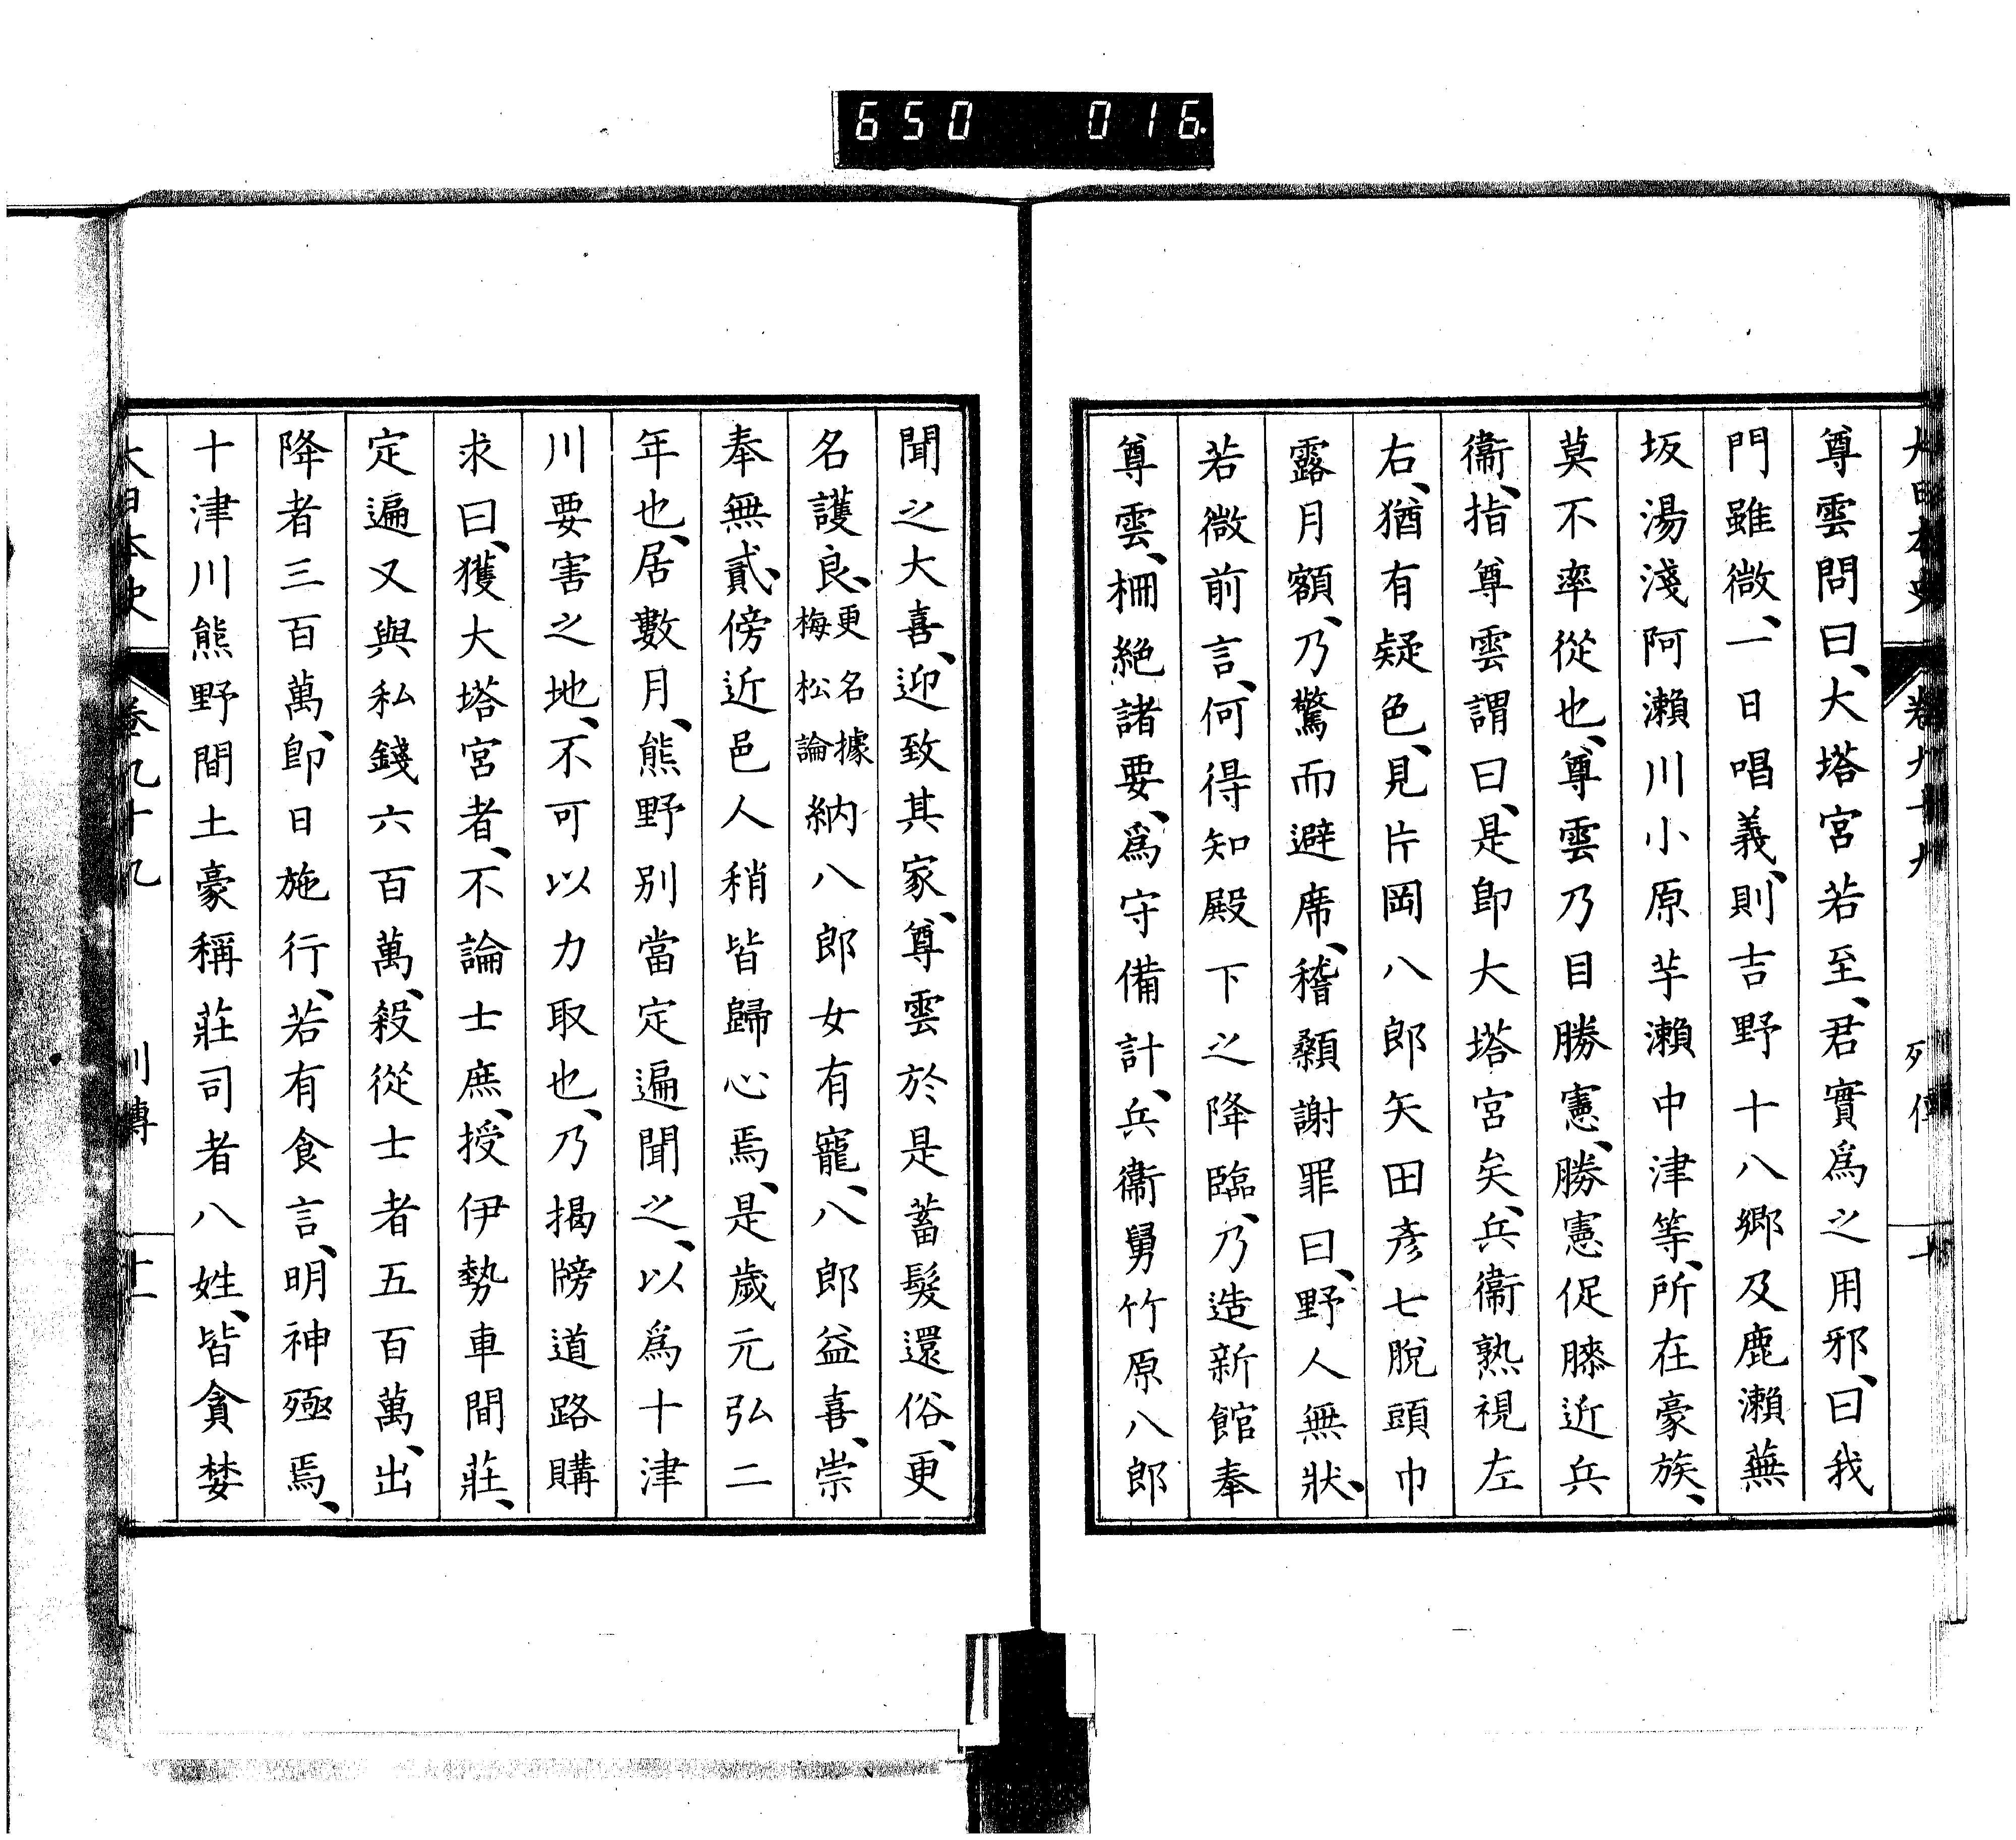 650 016
大日本史 卷九十九 列傳 十
尊雲問曰、大塔宮若至、君實爲之用邪、曰我
門雖微、一日唱義、則吉野十八鄉及鹿瀨蕪
坂湯淺阿瀨川小原芋瀨中津等、所在豪族、
莫不率從也、尊雲乃目勝憲、勝憲促膝近兵
衞、指尊雲謂曰、是卽大塔宮矣、兵衞熟視左
右、猶有疑色、見片岡八郎矢田彥七脫頭巾
露月額、乃驚而避席、稽顙謝罪曰、野人無狀、
若微前言、何得知殿下之降臨、乃造新館奉
尊雲、柵絕諸要、爲守備計、兵衞舅竹原八郎
聞之大喜、迎致其家、尊雲於是蓄髮還俗、更
名護良、更名據梅松論納八郎女有寵、八郎益喜、崇
奉無貳、傍近邑人稍皆歸心焉、是歲元弘二
年也、居數月、熊野別當定遍聞之、以爲十津
川要害之地、不可以力取也、乃揭牓道路購
求曰、獲大塔宮者、不論士庶、授伊勢車間莊、
定遍又與私錢六百萬、殺從士者五百萬、出
降者三百萬、卽日施行、若有食言、明神殛焉、
十津川熊野間土豪稱莊司者八姓、皆貪婪
大日本史 卷九十九 列傳 十一